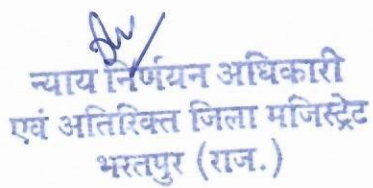 न्याय निर्णयन अधिकारी
एवं अतिरिक्त जिला मजिस्ट्रेट
भरतपुर (राज.)